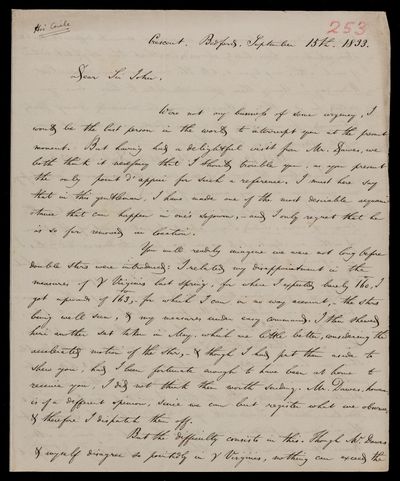 253
Crescent, Bedford, September 15th. 1833.
Dear Sir John,
Were not my business of some urgency, I
would be the last person in the world to interrupt you at the present
moment. But having had a delightful visit from Mr. Dawes, we
both think it necessary that I should trouble you, as you present
the only point d'appui for such a reference. I must here say
that in this gentleman, I have made one of the most desirable acquain-
tance that can happen in one's sojourn, - and I only regret that he
is so far removed in location.
You will readily imagine we were not long before
double stars were introduced: I related my disappointment in the
measures of γ Virginis last Spring, for when I expected barely 160, I
got upwards of 163, - for which I can in no way account, - the stars
being well seen, & my measures under easy command. I then shewed
him another set taken in May, which are little better, considering the
accelerated motion of the star, - & though I had put them aside to
shew you, had I been fortunate enough to have been at home to
receive you, I did not think them worth sending. Mr. Dawes, however
is of a different opinion, since we can but register what we observe,
& therefore I dispatch them off.
But the difficulty consists in this. Though Mr. Dawes
& myself disagree so pointedly in γ Virginis, nothing can exceed the